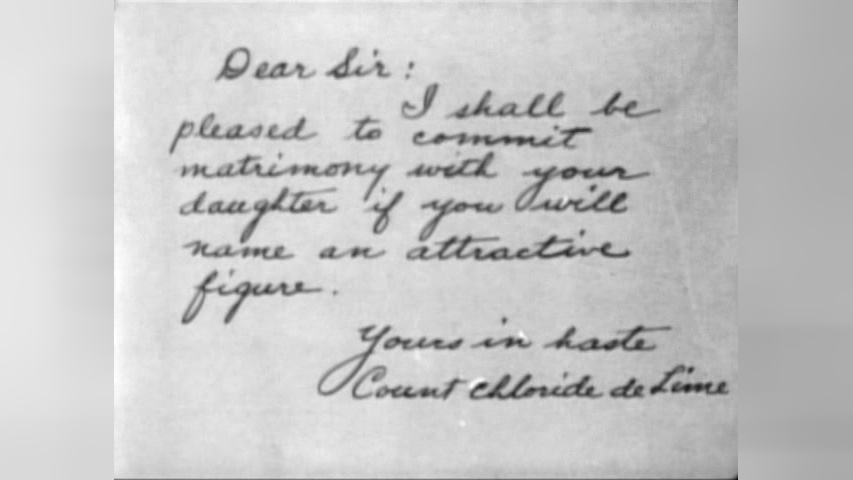 Dear Sir:
I shall be
pleased to commit
matrimony with your
daughter if you will
name an attractive
figure.
Yours in haste
Count Chloride de Lime